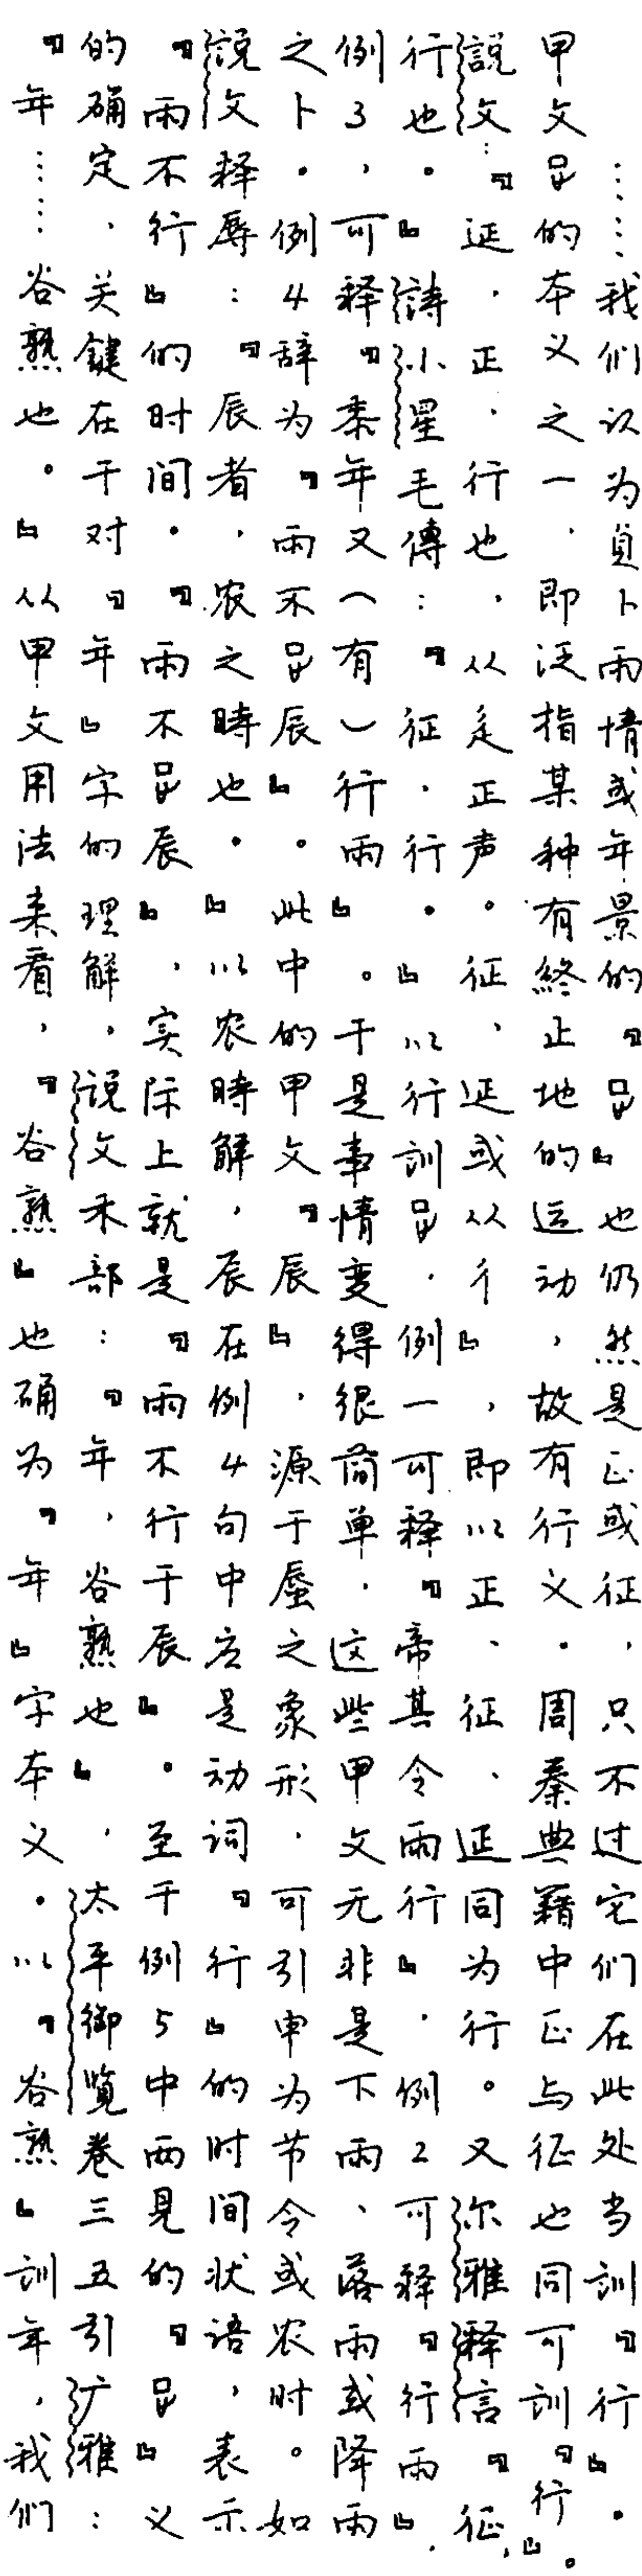 ……我们认为貞卜雨情或年景的『𧾷』也仍然是正或征，只不过它们在此处当訓『行』。
甲文𧾷的本义之一，即泛指某种有終止地的运动，故有行义。周秦典籍中正与征也同可訓『行』。
說文：『延，正、行也，从辵正声。征，延或从彳』，即以正、征、延同为行。又尔雅释言『征，
行也。』詩小星毛傳：『征，行。』以行訓𧾷，例一可释『帝其令雨行』，例2可释『行雨』，
例3，可释『黍年又（有）行雨』。于是事情变得很简单，这些甲文无非是下雨、落雨或降雨
之卜。例4辞为『雨不𧾷辰』。此中的甲文『辰』，源于蜃之象形，可引申为节令或农时。如
說文释辱：『辰者，农之時也。』以农時解，辰在例4句中应是动词『行』的时间状语，表示
『雨不行』的时间。『雨不𧾷辰』，实际上就是『雨不行于辰』。至于例5中两見的『𧾷』义
的确定，关鍵在于对『年』字的理解，說文禾部：『年，谷熟也』，太平御覧卷三五引广雅：
『年……谷熟也。』从甲文用法来看，『谷熟』也确为『年』字本义。以『谷熟』訓年，我们